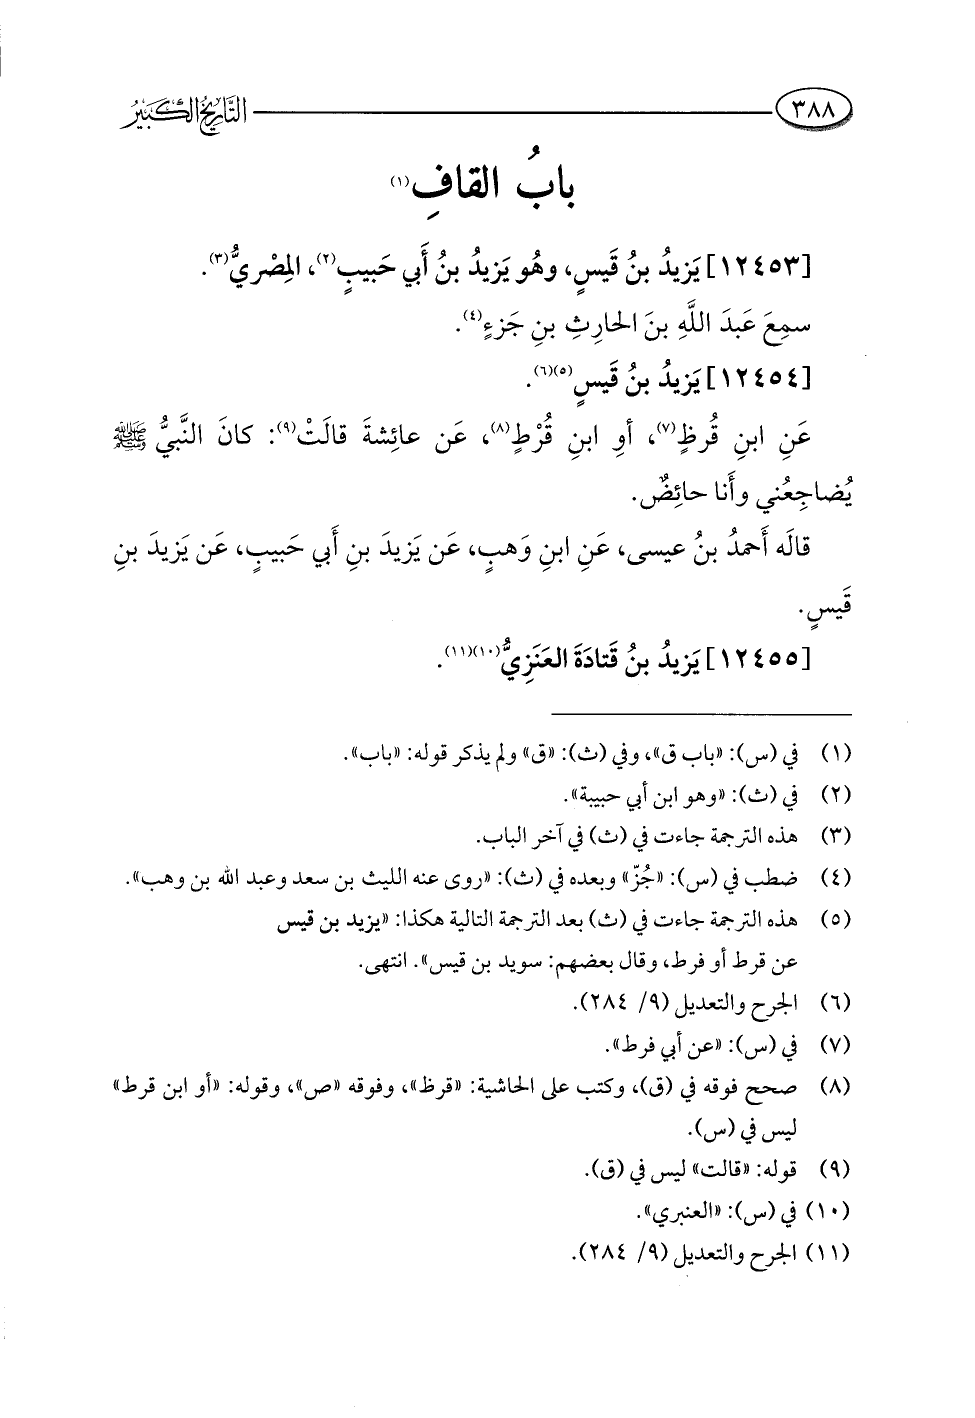 ٣٨٨
التَّارِيخُ الكَبِيرُ
بابُ القافِ(١)
[١٢٤٥٣] يَزِيدُ بنُ قَيسٍ، وهُو يَزِيدُ بنُ أَبي حَبيبٍ(٢)، المِصْريُّ(٣).
سمِعَ عَبدَ اللَّهِ بنَ الحارِثِ بنِ جَزءٍ(٤).
[١٢٤٥٤] يَزِيدُ بنُ قَيسٍ(٥)(٦).
عَنِ ابنِ قُرظٍ(٧)، أوِ ابنِ قُرْطٍ(٨)، عَن عائِشةَ قالَتْ(٩): كانَ النَّبيُّ ﷺ
يُضاجِعُني وأَنا حائِضٌ.
قالَه أَحمدُ بنُ عيسى، عَنِ ابنِ وَهبٍ، عَن يَزيدَ بنِ أَبي حَبيبٍ، عَن يَزيدَ بنِ
قَيسٍ.
[١٢٤٥٥] يَزِيدُ بنُ قَتادَةَ العَنَزِيُّ(١٠)(١١).
(١) في (س): «باب ق»، وفي (ث): «ق» ولم يذكر قوله: «باب».
(٢) في (ث): «وهو ابن أبي حبيبة».
(٣) هذه الترجمة جاءت في (ث) في آخر الباب.
(٤) ضطب في (س): «جُزّ» وبعده في (ث): «روى عنه الليث بن سعد وعبد الله بن وهب».
(٥) هذه الترجمة جاءت في (ث) بعد الترجمة التالية هكذا: «يزيد بن قيس
عن قرط أو فرط، وقال بعضهم: سويد بن قيس». انتهى.
(٦) الجرح والتعديل (٩/ ٢٨٤).
(٧) في (س): «عن أبي فرط».
(٨) صحح فوقه في (ق)، وكتب على الحاشية: «قرظ»، وفوقه «ص»، وقوله: «أو ابن قرط»
ليس في (س).
(٩) قوله: «قالت» ليس في (ق).
(١٠) في (س): «العنبري».
(١١) الجرح والتعديل (٩/ ٢٨٤).